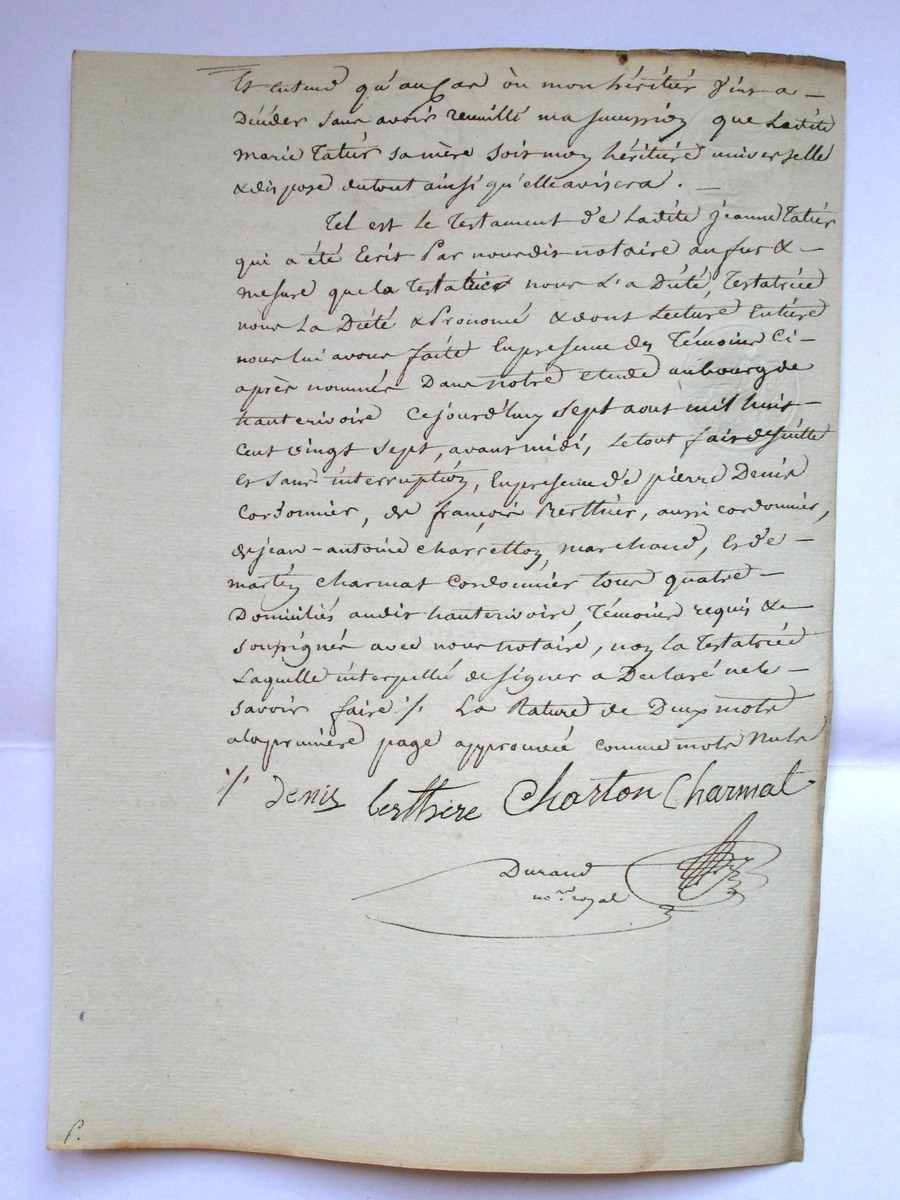 Et entend qu'au Cas où mon héritier Vint a –
Décéder sans avoir recueilli ma succession que Ladite
marie Tatier sa mère soit mon héritière universelle
& dispose du tout ainsi qu'elle avisera . –
Tel est le Testament de Ladite jeanne Tatier
qui a été Ecrit Par nous dit notaire au fur & –
mesure que la Testatrice nous L'a Dicté, Testatrice
nous La Dicté & Prononcé & dont Lecture Entière
nous lui avons faite En presence des Témoins Ci –
après nommés Dans notre étude au bourg de
hauterivoire Cejourd'huy sept aout mil huit –
Cent vingt sept, avant midi, Le tout fait de suitte
et sans interruption, En presence de pierre Denis
Cordonnier, de françois Berthier, aussi cordonnier,
de jean – antoine Charretton, marchand, et de –
martin Charmat Cordonnier tous quatre –
Domiciliés audit hauterivoire, Témoins requis & –
soussignés avec nous notaire, non la Testatrice
Laquelle interpellée de signer a Declaré ne le –
savoir faire ./. La Rature de Deux mots
a la première page approuvée comme mots Nuls
./. denis berthiere Charton Charmat
Durand
no.re royal